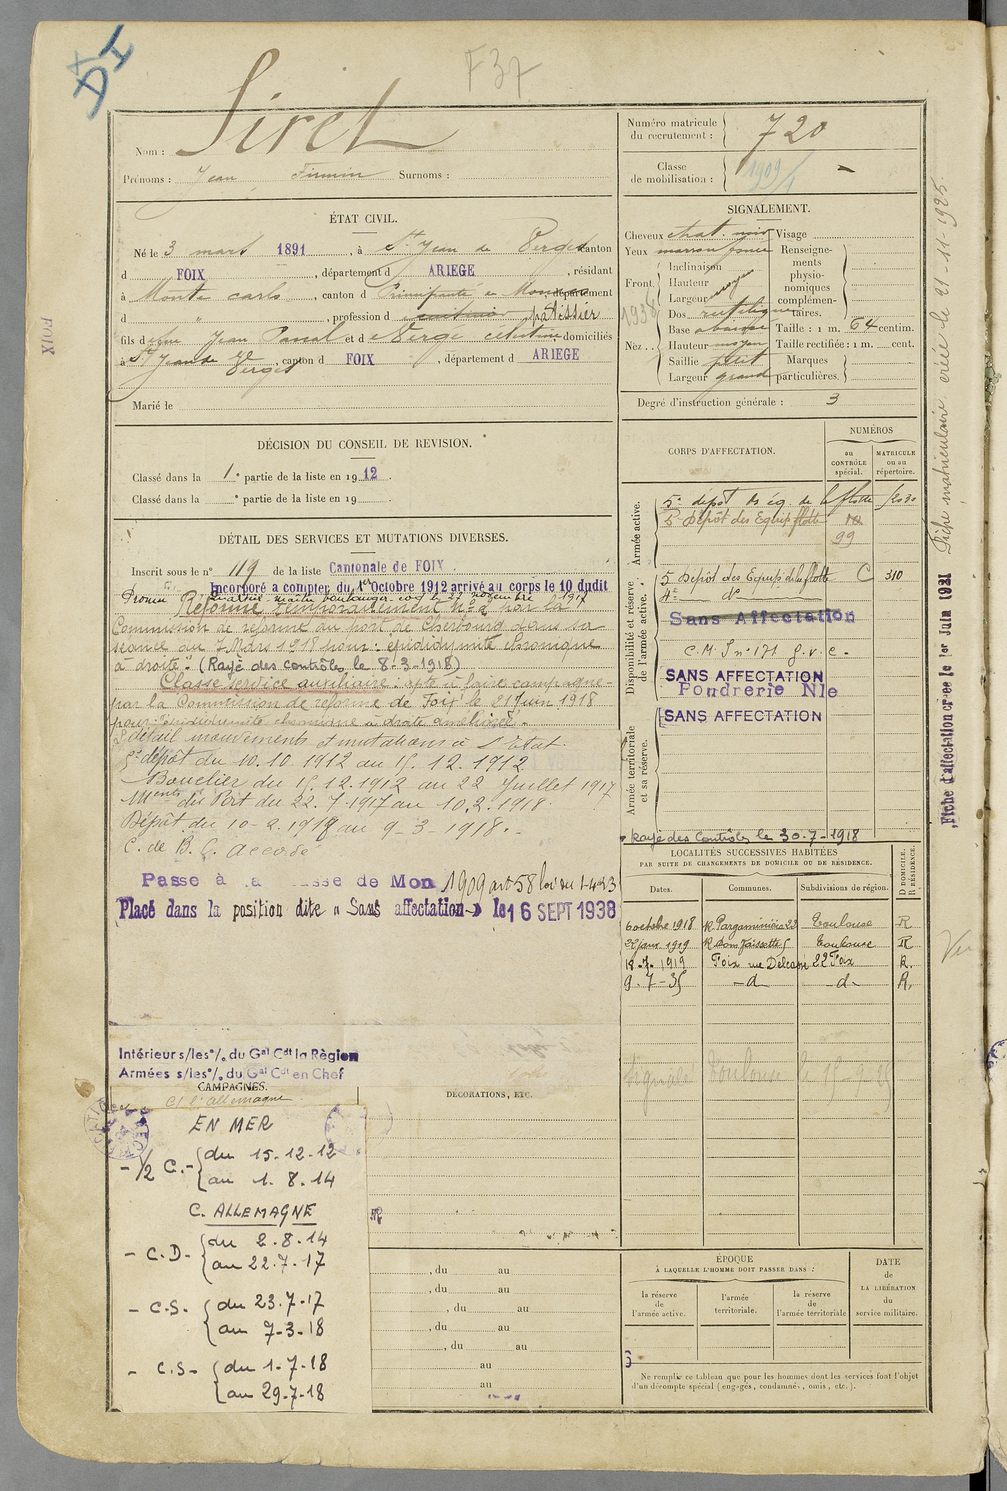 DI
F37
Siret
Nom :
Prénoms : Jean Firmin Surnoms :
Numéro matricule du recrutement : 720
Classe de mobilisation : 1909/1
ÉTAT CIVIL.
Né le 3 mars 1891, à St Jean de Verges canton
d FOIX, département d ARIEGE, résidant
à Monte carlo, canton d Principauté de Monaco, département
d " , profession d pâtissier
fils d e feu Jean Pascal et d e Verge célestine domiciliés
à St Jean de Verges, canton d FOIX, département d ARIEGE
Marié le
SIGNALEMENT.
Cheveux chat. noir Visage
Yeux marron foncé Renseigne-
Inclinaison ments
Front. Hauteur physio-
Largeur moy nomiques
1938
complémen-
Dos rectiligne taires.
Base abaissée Taille : 1 m. 64 centim.
Nez . . Hauteur moyen Taille rectifiée : 1 m. cent.
Saillie petit Marques
Largeur grand particulières.
Degré d'instruction générale : 3
DÉCISION DU CONSEIL DE REVISION.
Classé dans la 1e partie de la liste en 1912.
Classé dans la e partie de la liste en 19 .
DÉTAIL DES SERVICES ET MUTATIONS DIVERSES.
Inscrit sous le n° 119 de la liste Cantonale de FOIX
Incorporé a compter du 1er Octobre 1912 arrivé au corps le 10 dudit
Promu Quartier maître boulanger coq le 27 novembre 1917
Réformé temporairement n° 2 par la
Commission de réforme du port de Cherbourg dans sa
séance du 7 Mars 1918 pour : épididymite chronique
à droite". (Rayé des contrôles le 8-3-1918)
Classé service auxiliaire : apte à faire campagne -
par la Commission de réforme de Foix le 21 juin 1918
pour épididymite chronique à droite améliorée.
détail mouvements et mutations à l'Etat.
5e dépôt du 10.10.1912 au 15.12.1912
Bouclier du 15.12.1912 au 22 Juillet 1917
du Port du 22.7.1917 au 10.2.1918.
Dépôt du 10-2.1918 au 9-3-1918.-
C. de B. C. accordé
Passe à la classe de Mon 1909 art 58 loi du 1-4-23
Placé dans la position dite « Sans affectation » le 16 SEPT 1938
CORPS D'AFFECTATION.
NUMÉROS
au CONTRÔLE spécial.
MATRICULE ou au répertoire.
Armée active.
5e dépôt des éq. de la flotte
5e Dépôt des Equip. flotte
99
Disponibilité et réserve de l'armée active.
5 Dépôt des Equip de la flotte C 310
Sans Affectation
C.M.
SANS AFFECTATION
Poudrerie Nle
SANS AFFECTATION
Armée territoriale et sa réserve.
Rayé des Contrôles le 30-7-1918
LOCALITÉS SUCCESSIVES HABITÉES
PAR SUITE DE CHANGEMENTS DE DOMICILE OU DE RÉSIDENCE.
D DOMICILE. R RÉSIDENCE.
Dates. Communes. Subdivisions de région.
6 octobre 1918 R Pargaminières 23 Toulouse R
22 janv. 1919 Toulouse R
18-7-1919 Foix rue Delcassé 22 Foix R.
9-7-35 -d- -d- R.
Signalé Toulouse le
Intérieur s/les o/. du Gal Cdt la Règion
Armées s/les o/. du Gal Cdt en Chef
CAMPAGNES.
Ct l'allemagne
EN MER
- 1/2 C. - du 15-12-12
au 1.8.14
C. ALLEMAGNE
- C.D- du 2.8.14
au 22.7.17
- C.S- du 23.7-17
au 7-3-18
- C.S- du 1-7-18
au 29-7-18
DÉCORATIONS, ETC.
, du au
, du au
, du au
, du au
, du au
au
au
ÉPOQUE
À LAQUELLE L'HOMME DOIT PASSER DANS :
la réserve de l'armée active.
l'armée territoriale.
la réserve de l'armée territoriale
DATE de LA LIBÉRATION du service militaire.
Ne remplir ce tableau que pour les hommes dont les services font l'objet
d'un décompte spécial (engagés, condamnés, omis, etc.).
FOIX
Fiche d'affectation créée le 1er Juin 1931
Fiche matriculaire créée le 21-11-1925
Vu